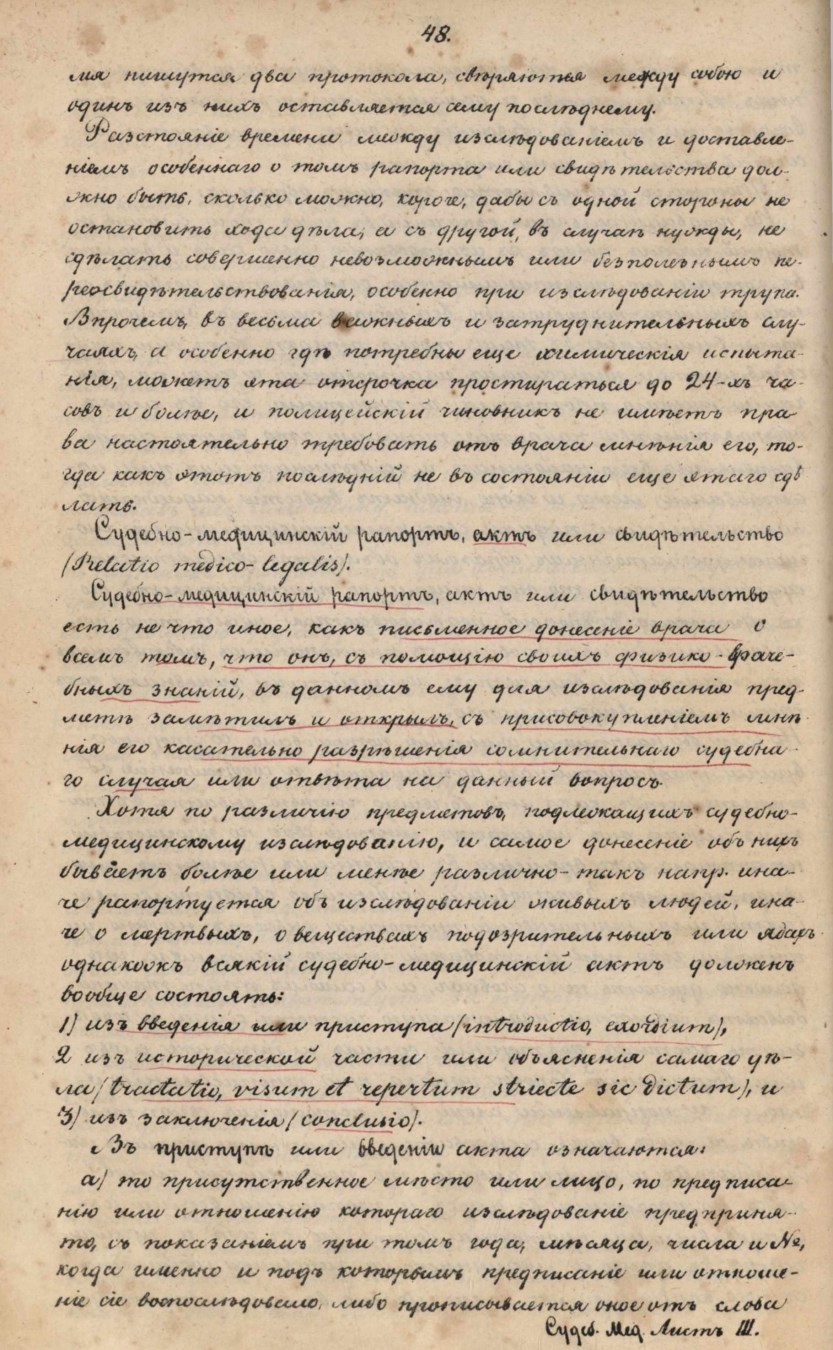 48.
мя пишутся два протокола, сверяются между собою и
одинъ изъ нихъ оставляется сему послѣднему.
Разстояніе времени между изслѣдованіемъ и доставле-
ніемъ особеннаго о томъ рапорта или свидѣтельства дол-
жно быть, сколько можно, короче, дабы съ одной стороны не
остановить хода дѣла, а съ другой, въ случаѣ нужды, не
сдѣлать совершенно невозможнымъ или безполезнымъ пе-
реосвидѣтельствованія, особенно при изслѣдованіи трупа.
Впрочемъ, въ весьма важныхъ и затруднительныхъ слу-
чаяхъ, а особенно гдѣ потребны еще химическія испыта-
нія, можетъ эта отсрочка простираться до 24-хъ ча-
совъ и болѣе, и полицейскій чиновникъ не имѣетъ пра-
ва настоятельно требовать отъ врача мнѣнія его, то-
гда какъ этотъ послѣдній не въ состояніи еще этаго сдѣ
лать.
Судебно-медицинскій рапортъ, актъ или свидѣтельство
(Relatio medico-legalis).
Судебно-медицинскій рапортъ, актъ или свидѣтельство
есть не что иное, какъ письменное донесеніе врача о
всемъ томъ, что онъ, съ помощію своихъ физико-враче-
бныхъ знаній, въ данномъ ему для изслѣдованія пред-
метѣ замѣтилъ и открылъ, съ присовокупленіемъ мнѣ
нія его касательно разрѣшенія сомнительнаго судебна-
го случая или отвѣта на данный вопросъ.
Хотя по различію предметовъ, подлежащихъ судебно-
медицинскому изслѣдованію, и самое донесеніе объ нихъ
бываетъ болѣе или менѣе различно-такъ напр. ина-
че рапортуется объ изслѣдованіи живыхъ людей, ина-
че о мертвыхъ, о веществахъ подозрительныхъ или ядахъ
однакожъ всякій судебно-медицинскій актъ долженъ
вообще состоять:
1) изъ введенія или приступа (introductio, exordium),
2 изъ исторической части или объясненія самаго дѣ-
ла (tractatio, visum et repertum striecte sic dictum), и
3) изъ заключенія (conclusio).
Въ приступѣ или введеніи акта означаются:
а) то присутственное мѣсто или лицо, по предписа-
нію или отношенію котораго изслѣдованіе предприня-
то, съ показаніемъ при томъ года, мѣсяца, числа и №,
когда именно и подъ которымъ предписаніе или отноше-
ніе сіе воспослѣдовало, либо прописывается оное отъ слова
Судеб. Мед. Листъ III.